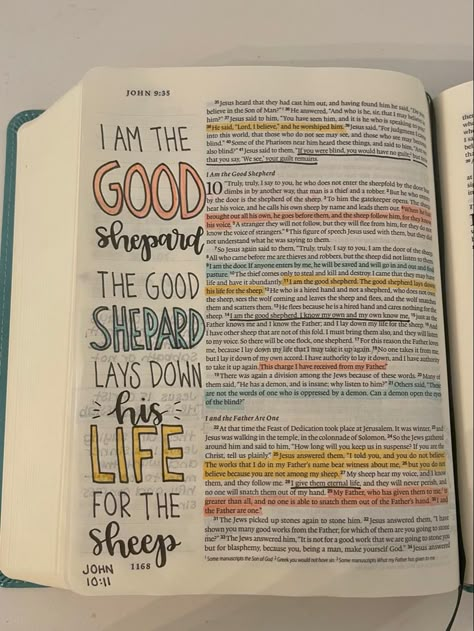 JOHN 9:35
I AM THE
GOOD
shepard
THE GOOD
SHEPARD
LAYS DOWN
his
LIFE
FOR THE
sheep
JOHN
10:11
1168
35 Jesus heard that they had cast him out, and having found him he said, "Do you
believe in the Son of Man?" 36 He answered, "And who is he, sir, that I may believe in
him?" 37 Jesus said to him, "You have seen him, and it is he who is speaking to you."
38 He said, "Lord, I believe," and he worshiped him. 39 Jesus said, "For judgment I came
into this world, that those who do not see may see, and those who see may become
blind." 40 Some of the Pharisees near him heard these things, and said to him, "Are we
also blind?" 41 Jesus said to them, "If you were blind, you would have no guilt; but now
that you say, 'We see,' your guilt remains.
I Am the Good Shepherd
10 "Truly, truly, I say to you, he who does not enter the sheepfold by the door but
climbs in by another way, that man is a thief and a robber. 2 But he who enters
by the door is the shepherd of the sheep. 3 To him the gatekeeper opens. The sheep
hear his voice, and he calls his own sheep by name and leads them out. 4 When he has
brought out all his own, he goes before them, and the sheep follow him, for they know
his voice. 5 A stranger they will not follow, but they will flee from him, for they do not
know the voice of strangers." 6 This figure of speech Jesus used with them, but they did
not understand what he was saying to them.
7 So Jesus again said to them, "Truly, truly, I say to you, I am the door of the sheep.
8 All who came before me are thieves and robbers, but the sheep did not listen to them.
9 I am the door. If anyone enters by me, he will be saved and will go in and out and find
pasture. 10 The thief comes only to steal and kill and destroy. I came that they may have
life and have it abundantly. 11 I am the good shepherd. The good shepherd lays down
his life for the sheep. 12 He who is a hired hand and not a shepherd, who does not own
the sheep, sees the wolf coming and leaves the sheep and flees, and the wolf snatches
them and scatters them. 13 He flees because he is a hired hand and cares nothing for the
sheep. 14 I am the good shepherd. I know my own and my own know me, 15 just as the
Father knows me and I know the Father; and I lay down my life for the sheep. 16 And
I have other sheep that are not of this fold. I must bring them also, and they will listen
to my voice. So there will be one flock, one shepherd. 17 For this reason the Father loves
me, because I lay down my life that I may take it up again. 18 No one takes it from me,
but I lay it down of my own accord. I have authority to lay it down, and I have authority
to take it up again. This charge I have received from my Father."
19 There was again a division among the Jews because of these words. 20 Many of
them said, "He has a demon, and is insane; why listen to him?" 21 Others said, "These
are not the words of one who is oppressed by a demon. Can a demon open the eyes
of the blind?"
I and the Father Are One
22 At that time the Feast of Dedication took place at Jerusalem. It was winter, 23 and
Jesus was walking in the temple, in the colonnade of Solomon. 24 So the Jews gathered
around him and said to him, "How long will you keep us in suspense? If you are the
Christ, tell us plainly." 25 Jesus answered them, "I told you, and you do not believe.
The works that I do in my Father's name bear witness about me, 26 but you do not
believe because you are not among my sheep. 27 My sheep hear my voice, and I know
them, and they follow me. 28 I give them eternal life, and they will never perish, and
no one will snatch them out of my hand. 29 My Father, who has given them to me, is
greater than all, and no one is able to snatch them out of the Father's hand. 30 I and
the Father are one."
31 The Jews picked up stones again to stone him. 32 Jesus answered them, "I have
shown you many good works from the Father; for which of them are you going to stone
me?" 33 The Jews answered him, "It is not for a good work that we are going to stone you
but for blasphemy, because you, being a man, make yourself God." 34 Jesus answered
1 Some manuscripts the Son of God 2 Greek you would not have sin 3 Some manuscripts What my Father has given to me